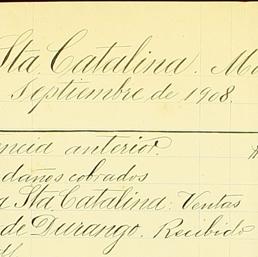 Sta Catalina. M
Septiembre de 1908.
encia anterior.
daños cobrados
Sta Catalina: Ventas
de Durango. Recibido